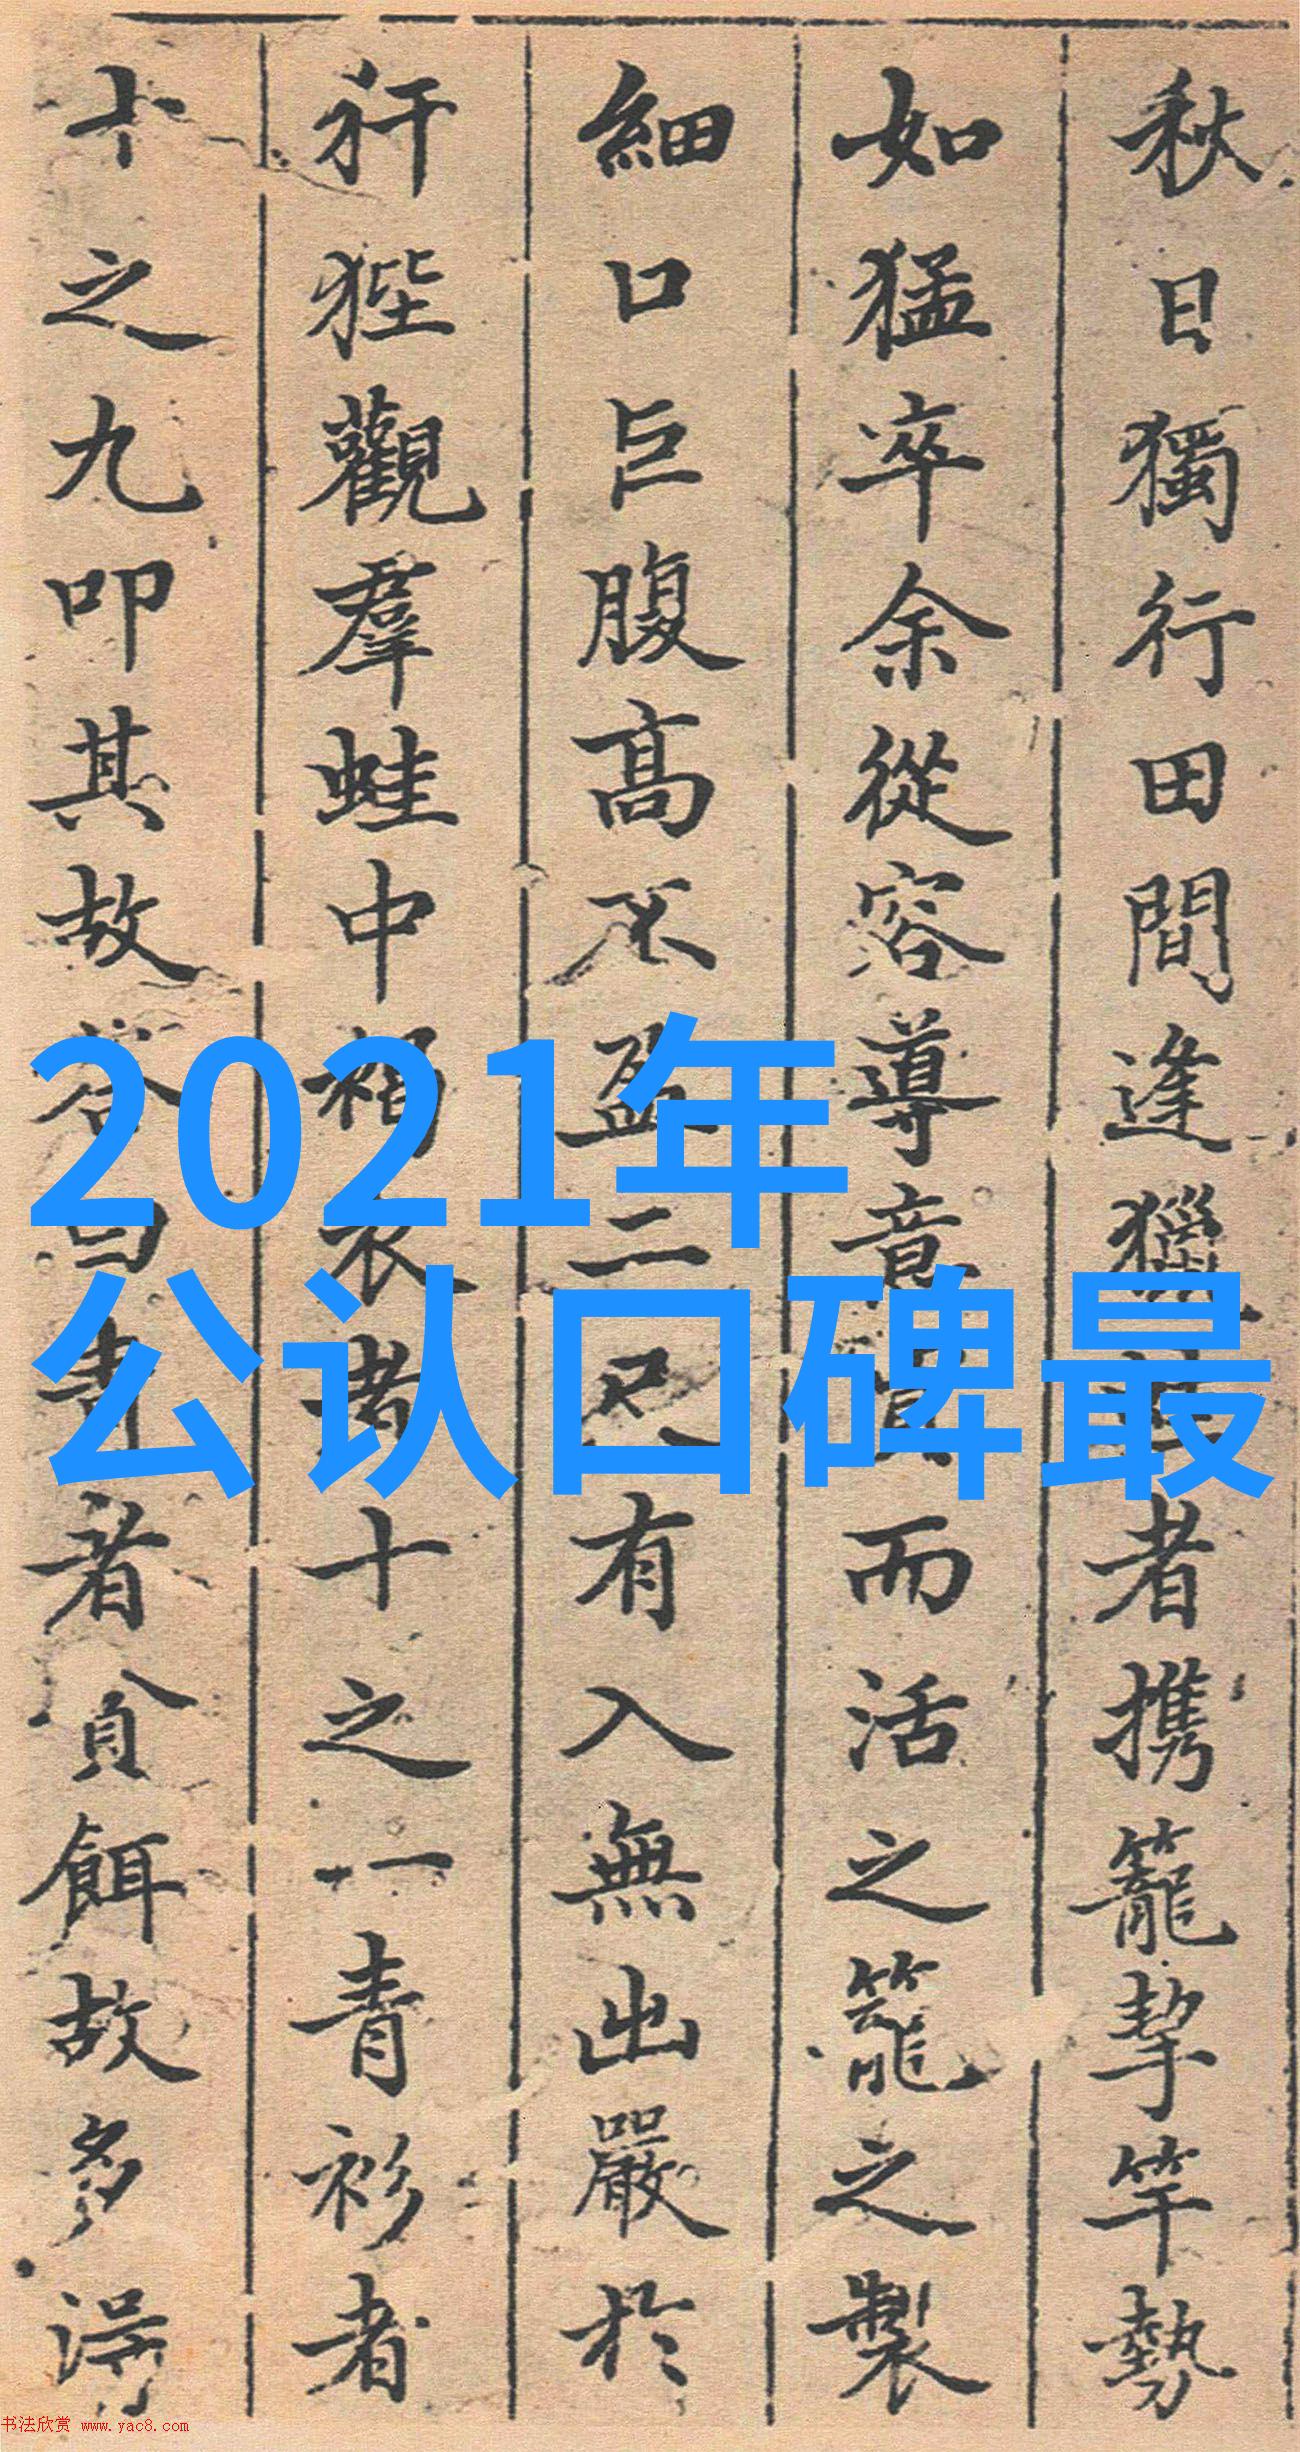 秋日獨行田間逢獵者携籠挈竿勢
如猛卒余從容導意而活之籠之製
細口巨腹高不盈二尺有入無出嚴於
犴狴觀羣蛙中褐衣者十之一青衫者
十之九叩其故答曰青者貪餌故多得
2021年
公认口碑最
书法欣赏 www.yac8.com